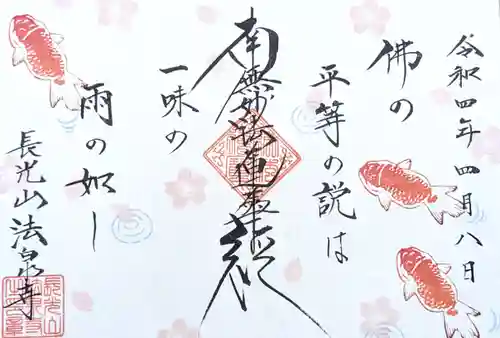 令和四年四月八日
佛の
平等の説は
南無妙法蓮華経
一味の
雨の如し
長光山法泉寺